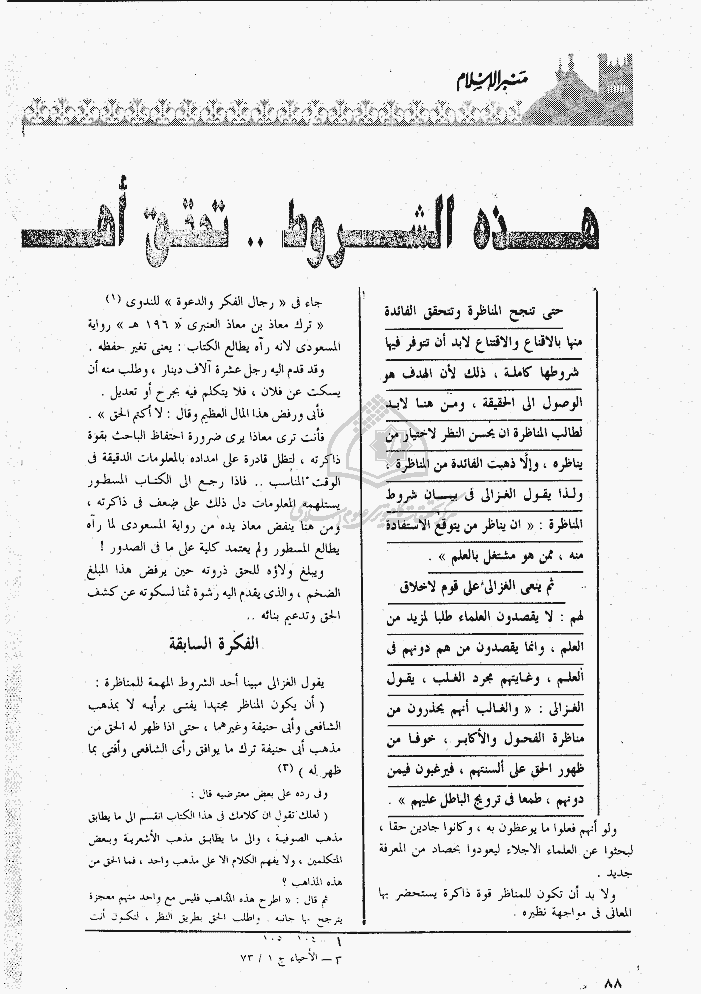 منبر الإسلام
هـذه الشـروط .. تحقـق أهـ
حتى تنجح المناظرة وتتحقق الفائدة
منها بالاقناع والاقتناع لابد أن تتوفر فيها
شروطها كاملـة ، ذلك لأن الهدف هو
الوصول الى الحقيقة ، ومن هنا لابد
لطالب المناظرة ان يحسن النظر لاختيار من
يناظره ، وإلّا ذهبت الفائدة من المناظرة .
ولذا يقول الغزالى فى بيـسان شروط
المناظرة : « ان يناظر من يتوقع الاستفادة
منه ، ممن هو مشتغل بالعلم » .
ثم ينعى الغزالى على قوم لاخلاق
لهم : لا يقصدون العلماء طلبا لمزيد من
العلم ، وانما يقصدون من هم دونهم فى
العلـم ، وغـايتهم مجرد الغلـب ، يقـول
الغـزالى : « والغالب أنهم يحذرون من
مناظرة الفحـول والأكابـر ، خوفـا من
ظهور الحق على ألسنتهم ، فيرغبون فيمن
دونهم ، طمعا فى ترويج الباطل عليهم » .
ولو أنهم فعلوا ما يوعظون به ، وكانوا جادين حقا ،
لبحثوا عن العلماء الاجلاء ليعودوا بحصاد من المعرفة
جديد .
ولا بد أن تكون للمناظر قوة ذاكرة يستحضر بها
المعانى فى مواجهة نظيره .
جاء فى « رجال الفكر والدعوة » للندوى (١)
« ترك معاذ بن معاذ العنبرى « ١٩٦ هـ » رواية
المسعودى لانه رآه يطالع الكتاب : يعنى تغير حفظه .
وقد قدم اليه رجل عشرة آلاف دينار ، وطلب منه أن
يسكت عن فلان ، فلا يتكلم فيه بجرح أو تعديل .
فأبى ورفض هذا المال العظيم وقال : لا أكتم الحق » .
فأنت ترى معاذا يرى ضرورة احتفاظ الباحث بقوة
ذاكرته ، لتظل قادرة على امداده بالمعلومات الدقيقة فى
الوقت المناسب .. فاذا رجع الى الكتاب المسطور
يستلهمه المعلومات دل ذلك على ضعف فى ذاكرته ،
ومن هنا ينفض معاذ يده من رواية المسعودى لما رآه
يطالع المسطور ولم يعتمد كلية على ما فى الصدور !
ويبلغ ولاؤه للحق ذروته حين يرفض هذا المبلغ
الضخم ، والذى يقدم اليه رشوة ثمنا لسكوته عن كشف
الحق وتدعيم بنائه ..
الفكرة السابقة
يقول الغزالى مبينا أحد الشروط المهمة للمناظرة :
( أن يكون المناظر مجتهدا يفتـى برأيـه لا بمذهب
الشافعى وأبى حنيفة وغيرهما ، حتى اذا ظهر له الحق من
مذهب أبى حنيفة ترك ما يوافق رأى الشافعى وأفتى بما
ظهر له ) (٣)
وفى رده على بعض معترضيه قال :
( لعلك تقول ان كلامك فى هذا الكتاب انقسم الى ما يطابق
مذهب الصوفية ، والى ما يطابـق مذهب الأشعريـة وبـعض
المتكلمين ، ولا يفهم الكلام الا على مذهب واحد ، فما الحق من
هذه المذاهب ؟
ثم قال : « اطرح هذه المذاهب فليس مع واحد منهم معجزة
يترجح بها جانبه . واطلب الحق بطريق النظر ، لتكون أنت
١ ـ ١٠٤ ، ١٠٥
٣ ـ الأحياء ج ١ / ٧٣
٨٨